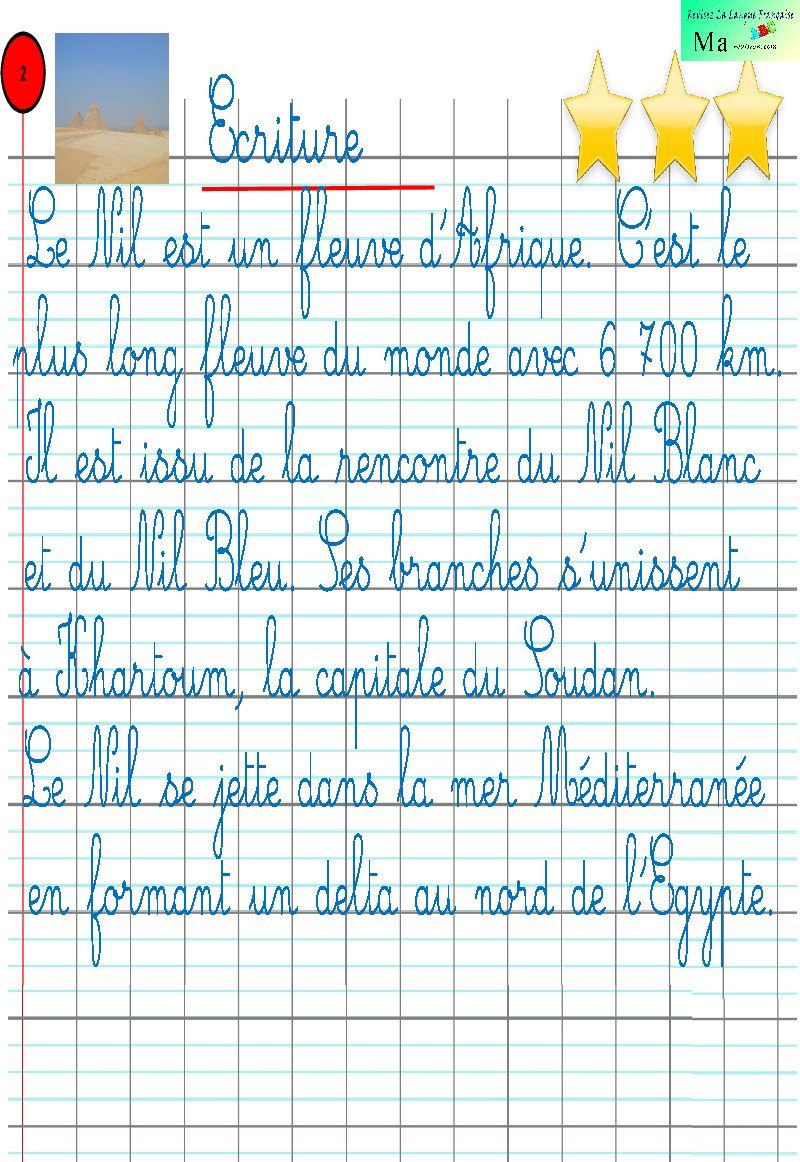 Revisez La Langue Française
Ma
revision.com
2
Ecriture
Le Nil est un fleuve d'Afrique. C'est le
plus long fleuve du monde avec 6 700 km.
Il est issu de la rencontre du Nil Blanc
et du Nil Bleu. Ses branches s'unissent
à Khartoum, la capitale du Soudan.
Le Nil se jette dans la mer Méditerranée
en formant un delta au nord de l'Egypte.